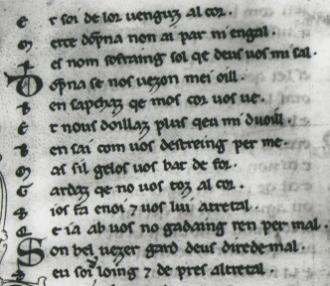 E r soi de lor uenguz al cor.
M erce dopna non ai par ni engal.
E s nom sofraing sol qe deus uos mi sal.
D opna se nos uezon mei oill.
B en sapchaz qe mos cor uos ue.
E t nous doillaz plus qeu mi duoill.
B en sai com uos destreing per me.
M as sil gelos uos bat de for.
G ardaz qe no uos toz al cor.
S ios fa enoi ⁊ uos lui atretal.
E ia ab uos no gadaing ren per mal.
S on bel uezer gard deus direde mal.
S eu soi loing ⁊ de pres altretal.